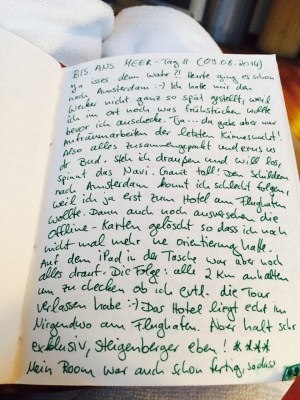 BIS ANS MEER - Tag 11 (09.08.2014)
ya isses denn wahr?! Heute ging es schon
nach Amsterdam :-) Ich hatte mir den
Wecker nicht ganz so spät gestellt, weil
ich im Ort noch was frühstücken wollte
bevor ich auschecke. Tja... da gabs aber nur
Aufräumarbeiten der letzten
Also alles zusammengepackt und raus
dr Bud. Steh ich draußen und will los,
spinnt das Navi. Ganz toll! Den Schildern
nach Amsterdam konnt ich schlecht folgen,
weil ich ja erst zum Hotel am Flughafen
wollte. Dann auch noch ausversehen die
Offline-Karten gelöscht so dass ich noch
nicht mal mehr ne orientierung hatte.
Auf dem iPad in der Tasche war aber noch
alles drauf. Die Folge: alle 2 km anhalten
um zu checken ob ich evtl. die Tour
verlassen habe :-) Das Hotel liegt echt im
Nirgendwo am Flughafen. Aber halt sehr
exklusiv, Steigenberger eben! ****
Mein Room war auch schon fertig, sodass